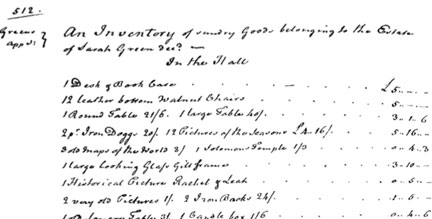 512.
Greens
App:t
An Inventory of sundry Goods belonging to the Estate
of Sarah Green dec:d —
In the Hall
1 Desk & Book Case £5..—..—
12 leather bottom Walnut Chairs 5..—..—
1 Round Table 21/6. 1 large Table 40/. 3..1..6
2 p:r Iron Doggs 20/. 12 Pictures of the Seasons £4..16/. 5..16..—
3 old Maps of the World 2/. 1 Solomons Temple 1/3 0..4..3
1 large looking Glass Gilt frame 3..10..—
1 Historical Picture Rachel & Leah 0..5..—
2 very old Pictures 1/. 2 Iron Backs 24/.
Table 3/. 1 Candle box 1/6 0..4..6